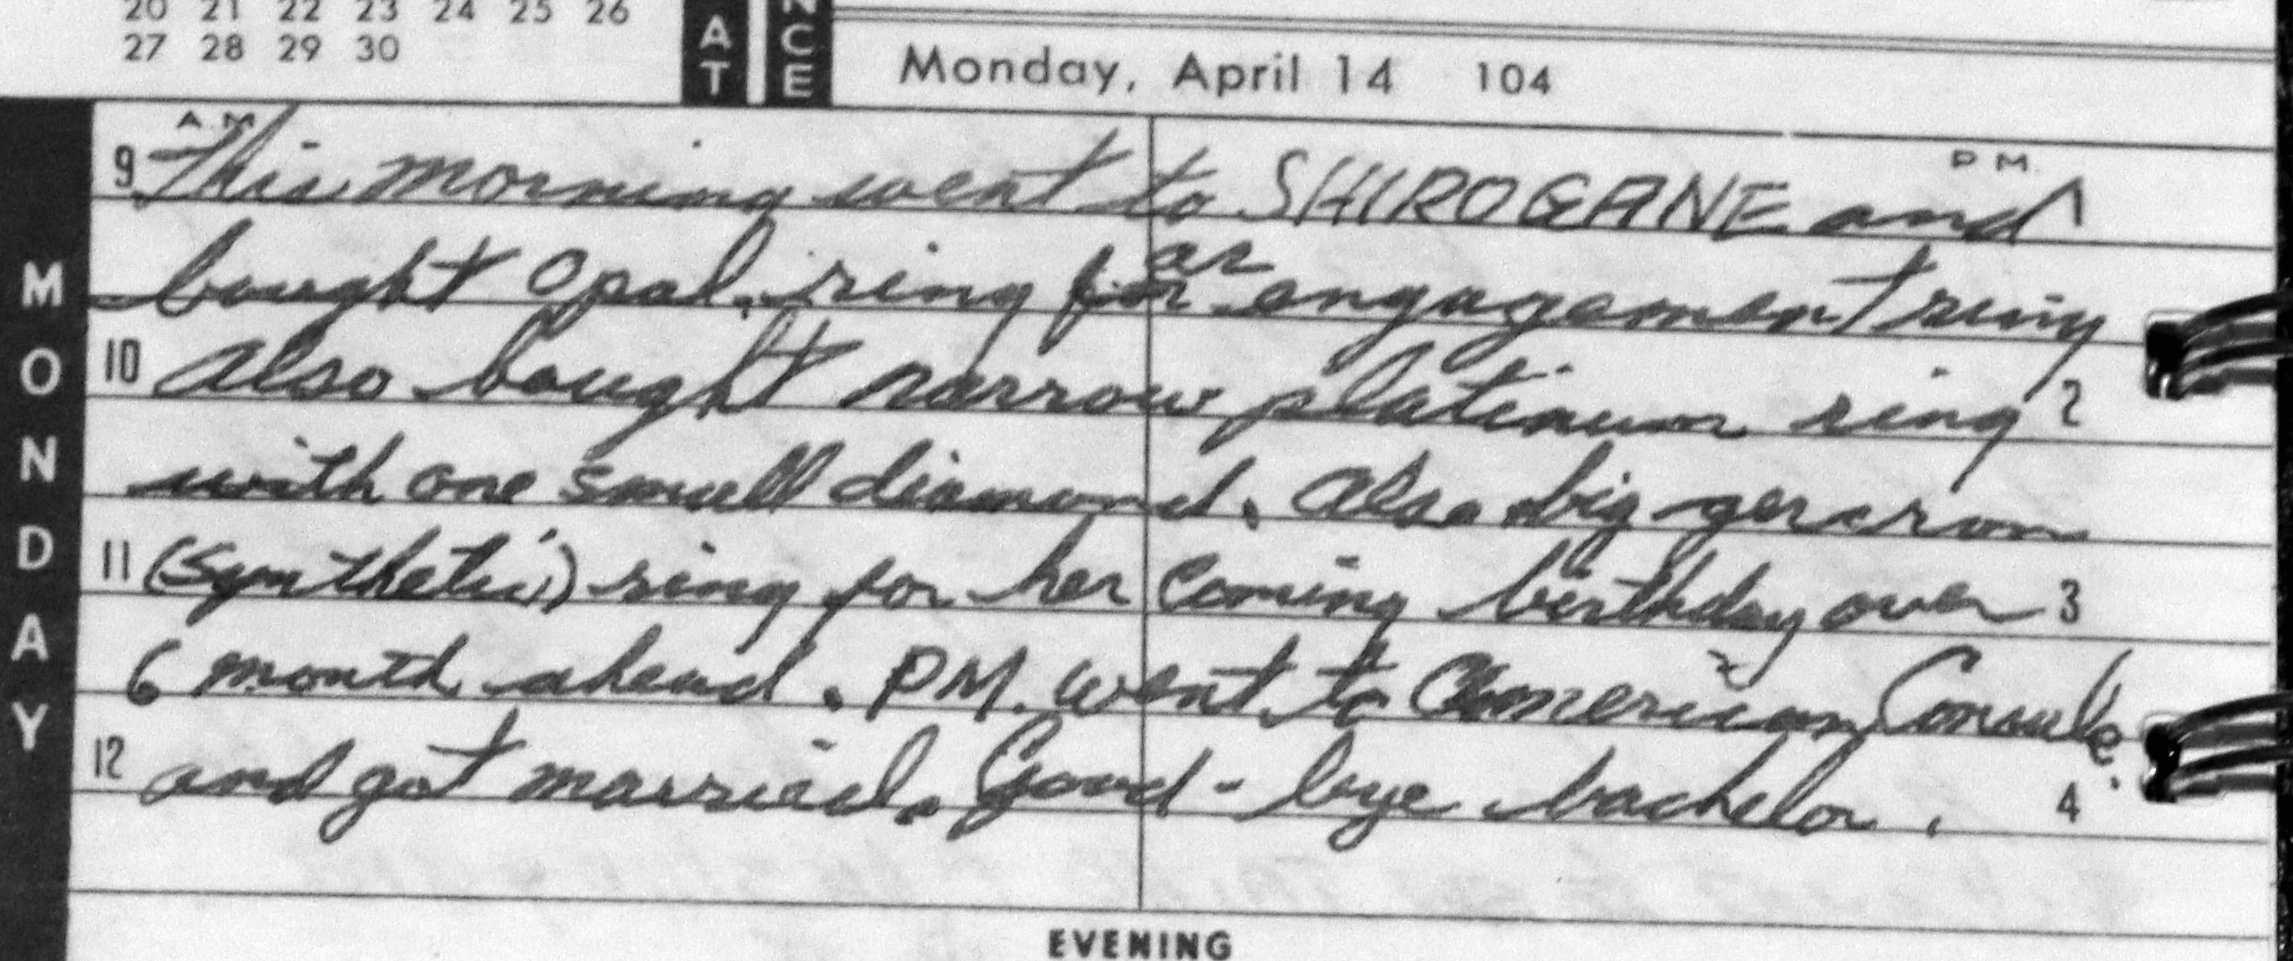 20 21 22 23 24 25 26
27 28 29 30
AT
NCE
Monday, April 14 104
MONDAY
A M
P M.
9 This morning went to SHIROGANE and 1
bought Opal. ring for as engagement ring
10 Also bought narrow platinum ring 2
with one small diamond. Also big
11 (synthetic) ring for her coming birthday over 3
6 month ahead. PM. went to American Consule
12 and got married. Good-bye bachelor. 4
EVENING